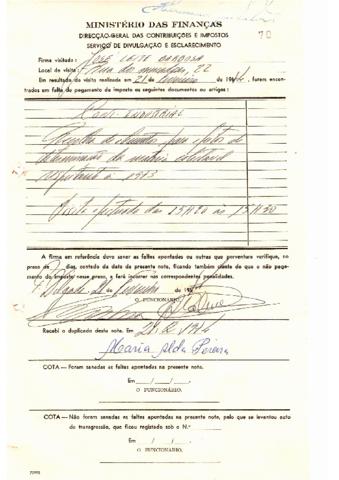 70
MINISTÉRIO DAS FINANÇAS
DIRECÇÃO-GERAL DAS CONTRIBUIÇÕES E IMPOSTOS
SERVIÇO DE DIVULGAÇÃO E ESCLARECIMENTO
Firma visitada: José Leite
Local da visita: Rua do 22
Em resultado da visita realizada em 21 de Fevereiro de 1974, foram encon-
trados em falta de pagamento de imposto os seguintes documentos ou artigos:
Cont. Industrial
Recolha de elementos para efeitos de
determinação da matéria colectável
respeitante a 1973
Visita efectuada das 15H20 às 15H30
A firma em referência deve sanar as faltas apontadas ou outras que porventura verifique, no
prazo de dias, contado da data da presente nota, ficando também ciente de que o não paga-
mento do imposto nesse prazo, a fará incorrer nas correspondentes penalidades.
P. Delgada, 21 de Fevereiro de 1974
O FUNCIONÁRIO
Recebi o duplicado desta nota. Em 21/2/1974
Maria Alda Pereira
COTA — Foram sanadas as faltas apontadas na presente nota.
Em / /
O FUNCIONÁRIO
COTA — Não foram sanadas as faltas apontadas na presente nota, pelo que se levantou auto
de transgressão, que ficou registado sob o N.º
Em / /
O FUNCIONÁRIO